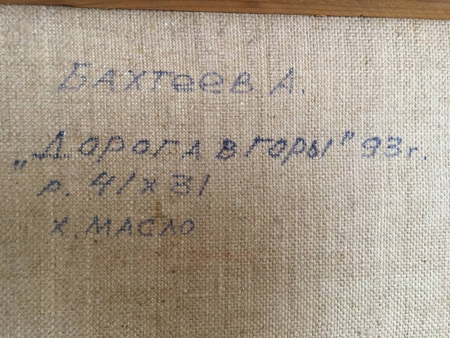 Бахтеев А.
„Дорога в горы" 93 г.
р. 41 х 31
х. масло